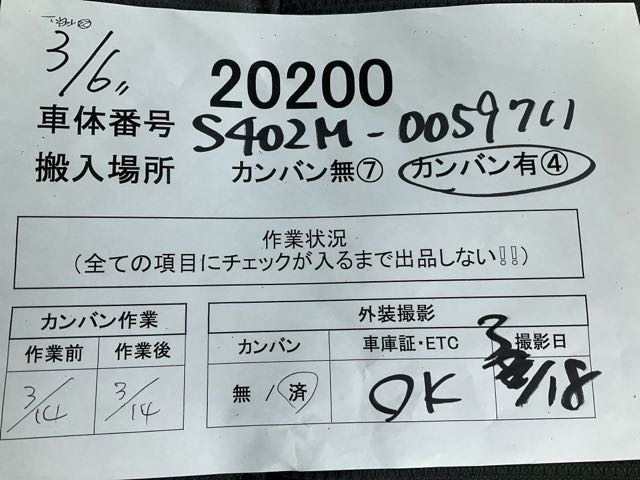 3/6〃
20200
車体番号 S402M-0059711
搬入場所 カンバン無⑦ カンバン有④
作業状況
(全ての項目にチェックが入るまで出品しない!!)
カンバン作業
作業前 作業後
3/14 3/14
外装撮影
カンバン 車庫証・ETC 撮影日
無 / 済 OK 3/18